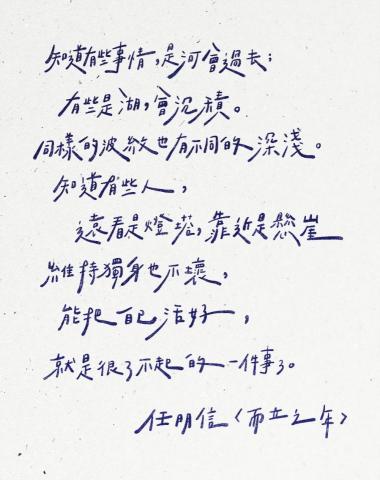 知道有些事情，是河會過去；
有些是湖，會沉積。
同樣的波紋也有不同的深淺。
知道有些人，
遠看是燈塔，靠近是懸崖
維持獨身也不壞，
能把自己活好，
就是很了不起的一件事了。
任明信〈而立之年〉